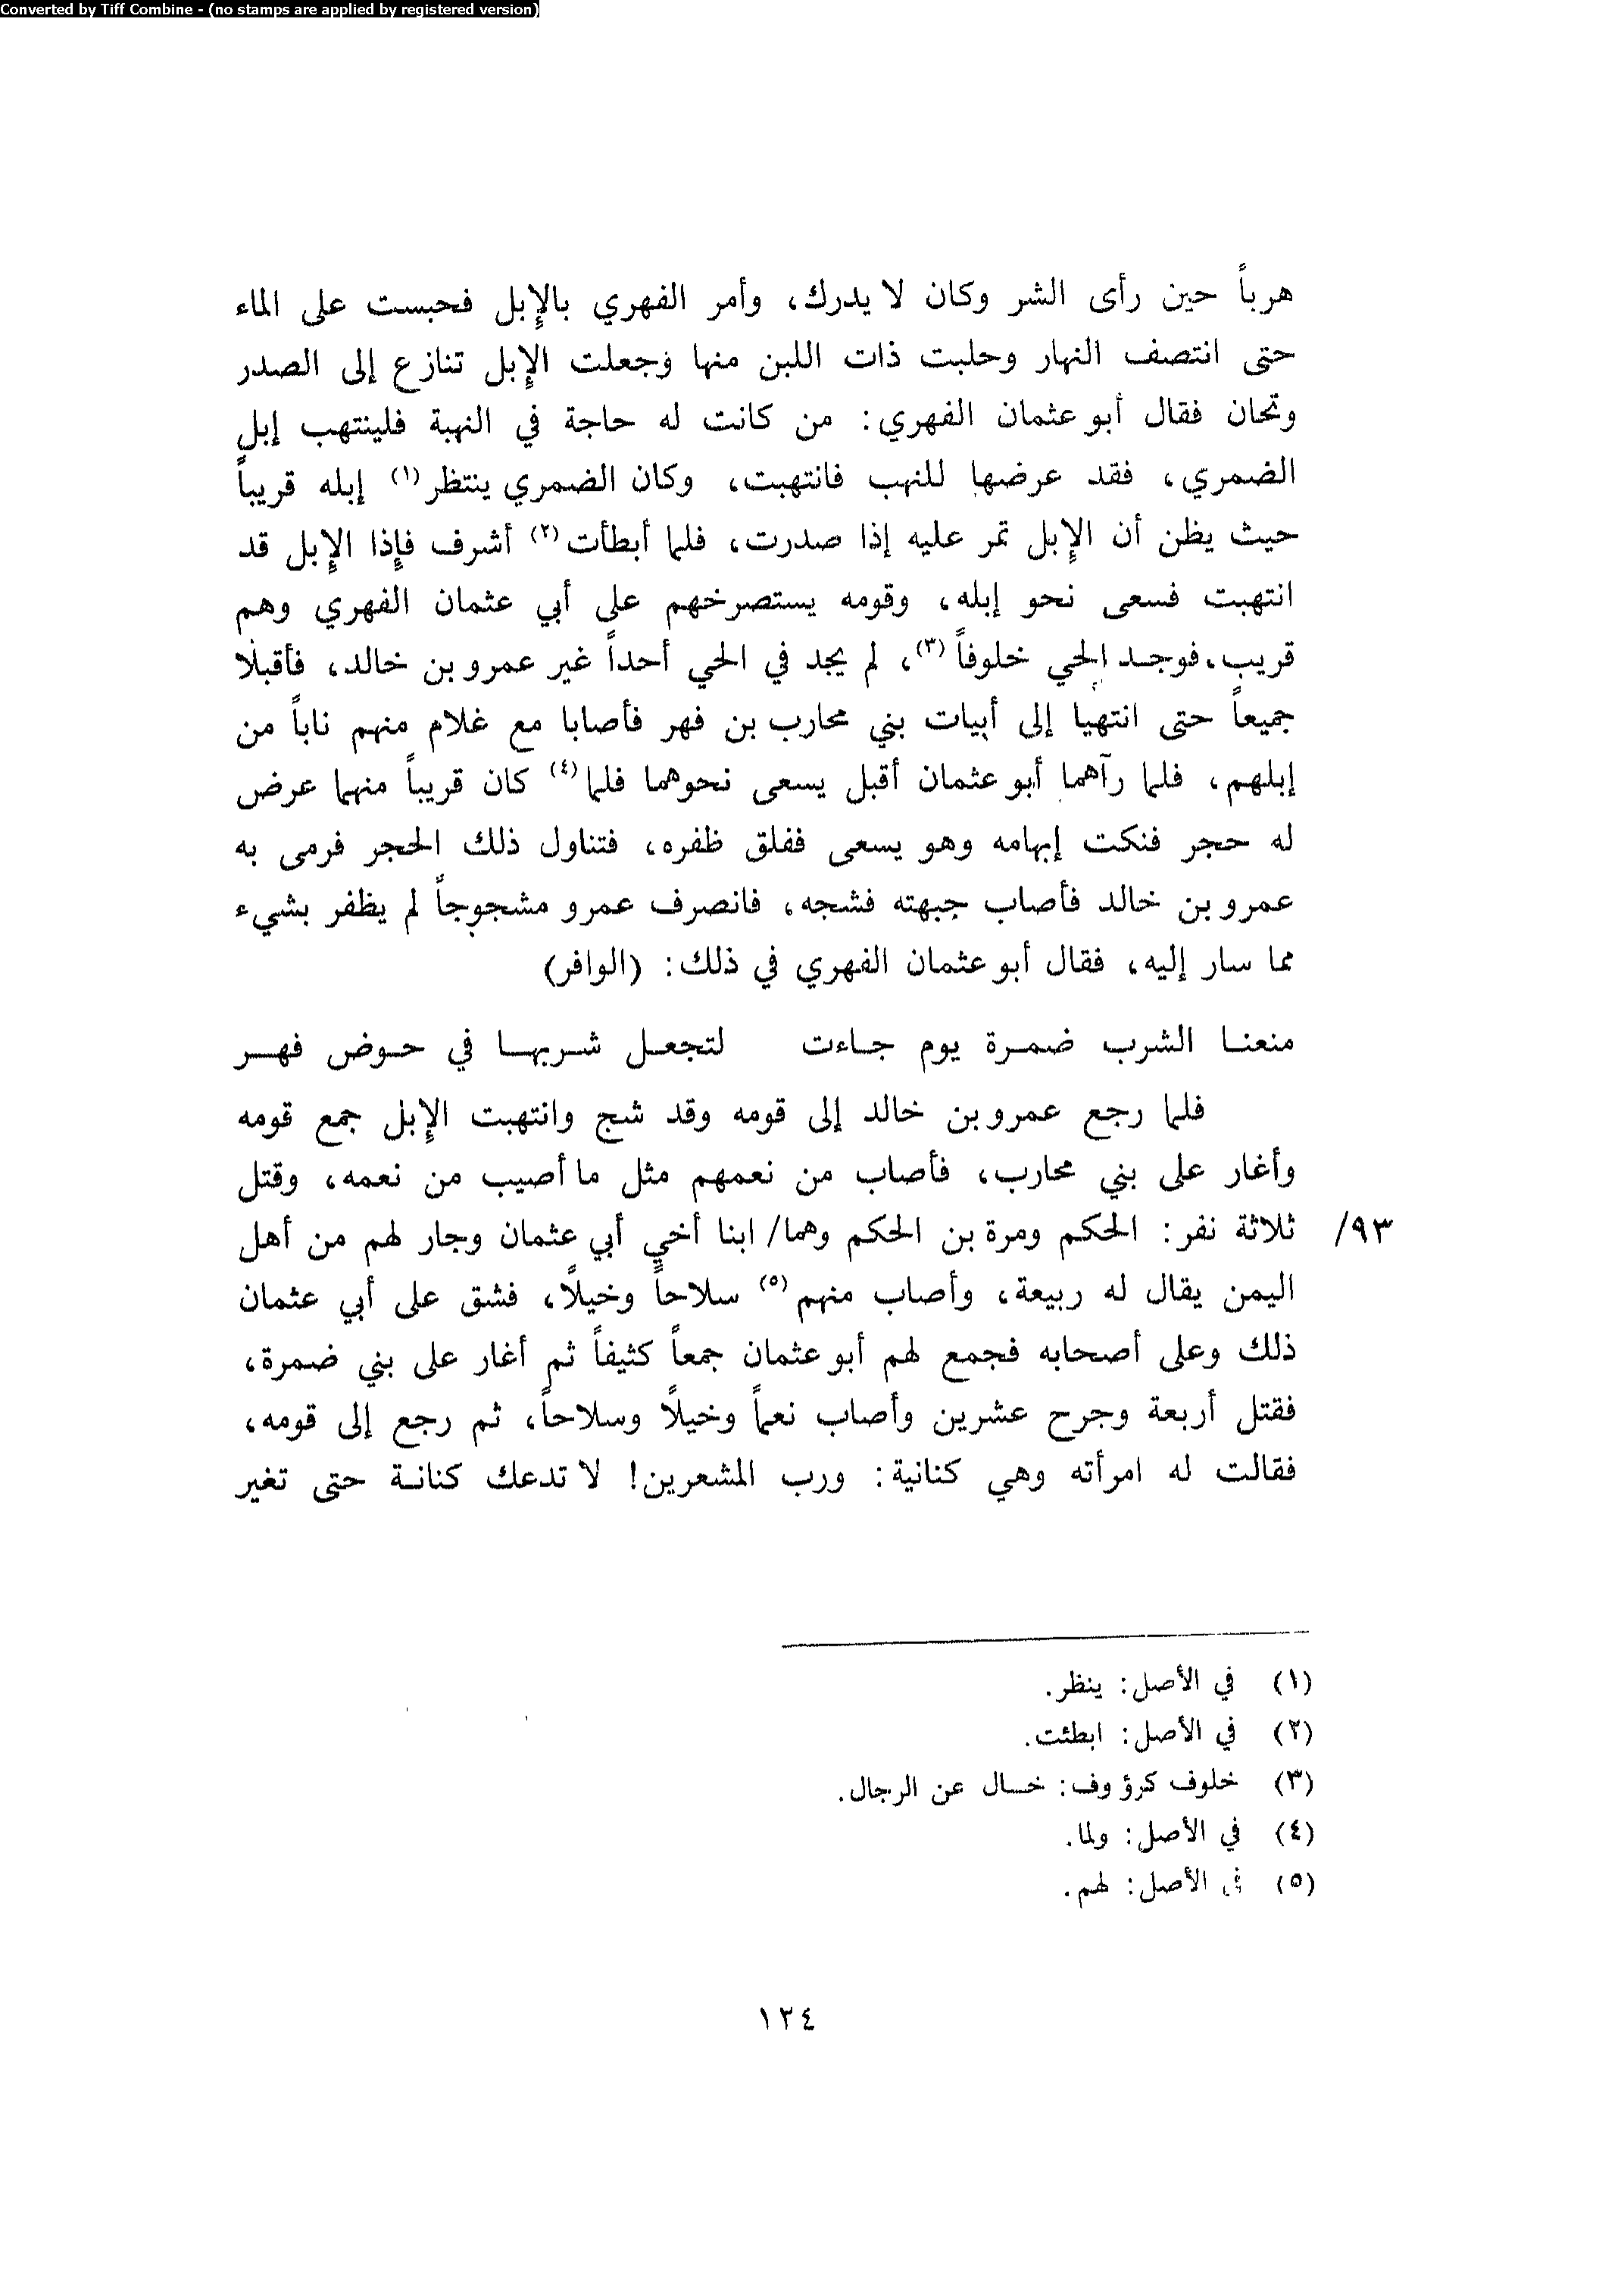 Converted by Tiff Combine - (no stamps are applied by registered version)
هرباً حين رأى الشر وكان لا يدرك، وأمر الفهري بالإبل فحبست على الماء
حتى انتصف النهار وحلبت ذات اللبن منها وجعلت الإبل تنازع إلى الصدر
وتحان فقال أبو عثمان الفهري: من كانت له حاجة في النهبة فلينتهب إبل
الضمري، فقد عرضها للنهب فانتهبت، وكان الضمري ينتظر(١) إبله قريباً
حيث يظن أن الإبل تمر عليه إذا صدرت، فلما أبطأت(٢) أشرف فإذا الإبل قد
انتهبت فسعى نحو إبله، وقومه يستصرخهم على أبي عثمان الفهري وهم
قريب، فوجد الحي خلوفاً(٣)، لم يجد في الحي أحداً غير عمرو بن خالد، فأقبلا
جميعاً حتى انتهيا إلى أبيات بني محارب بن فهر فأصابا مع غلام منهم ناباً من
إبلهم، فلما رآهما أبو عثمان أقبل يسعى نحوهما فلما(٤) كان قريباً منهما عرض
له حجر فنكت إبهامه وهو يسعى ففلق ظفره، فتناول ذلك الحجر فرمى به
عمرو بن خالد فأصاب جبهته فشجه، فانصرف عمرو مشجوجاً لم يظفر بشيء
مما سار إليه، فقال أبو عثمان الفهري في ذلك: (الوافر)
منعنا الشرب ضمرة يوم جاءت لتجعل شربها في حوض فهر
فلما رجع عمرو بن خالد إلى قومه وقد شج وانتهبت الإبل جمع قومه
وأغار على بني محارب، فأصاب من نعمهم مثل ما أصيب من نعمه، وقتل
٩٣/ ثلاثة نفر: الحكم ومرة بن الحكم وهما/ ابنا أخي أبي عثمان وجار لهم من أهل
اليمن يقال له ربيعة، وأصاب منهم(٥) سلاحاً وخيلًا، فشق على أبي عثمان
ذلك وعلى أصحابه فجمع لهم أبو عثمان جمعاً كثيفاً ثم أغار على بني ضمرة،
فقتل أربعة وجرح عشرين وأصاب نعماً وخيلًا وسلاحاً، ثم رجع إلى قومه،
فقالت له امرأته وهي كنانية: ورب المشعرين! لا تدعك كنانة حتى تغير
(١) في الأصل: ينظر.
(٢) في الأصل: ابطئت.
(٣) خلوف كرؤوف: خال عن الرجال.
(٤) في الأصل: ولما.
(٥) في الأصل: لهم.
١٣٤